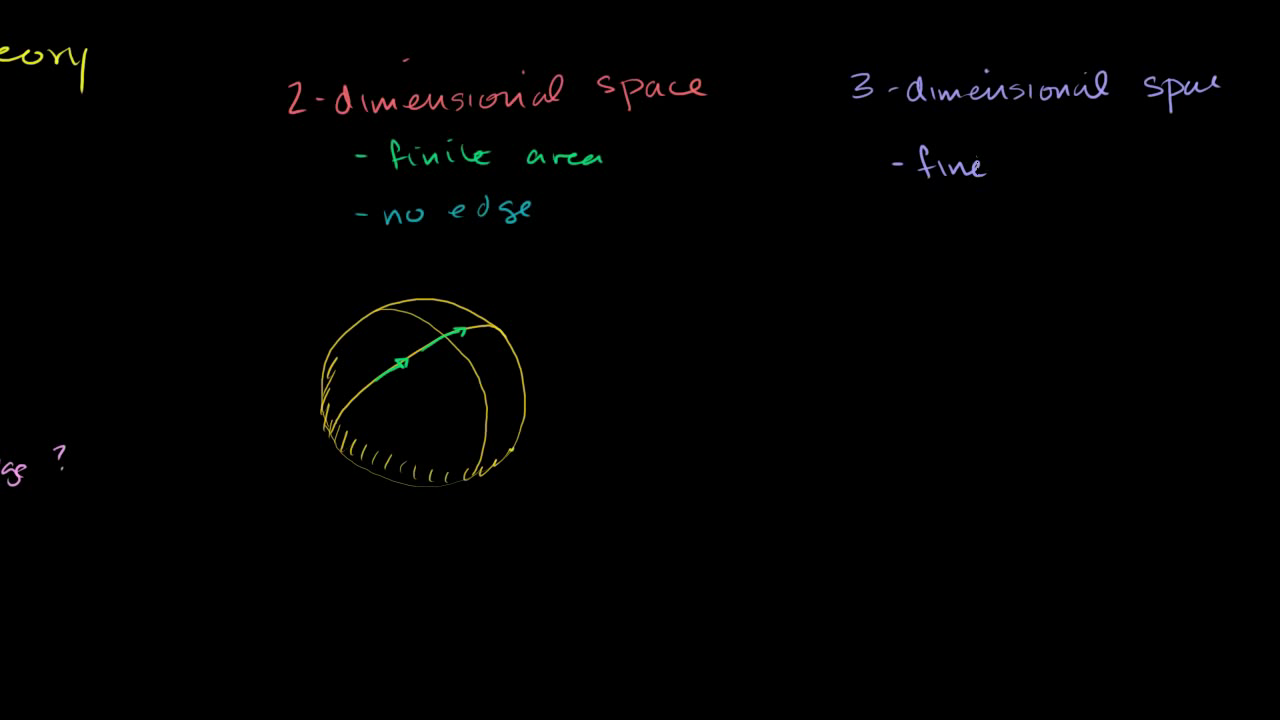 eory
2-dimensional space
- finite area
- no edge
3-dimensional space
- fine
ge ?